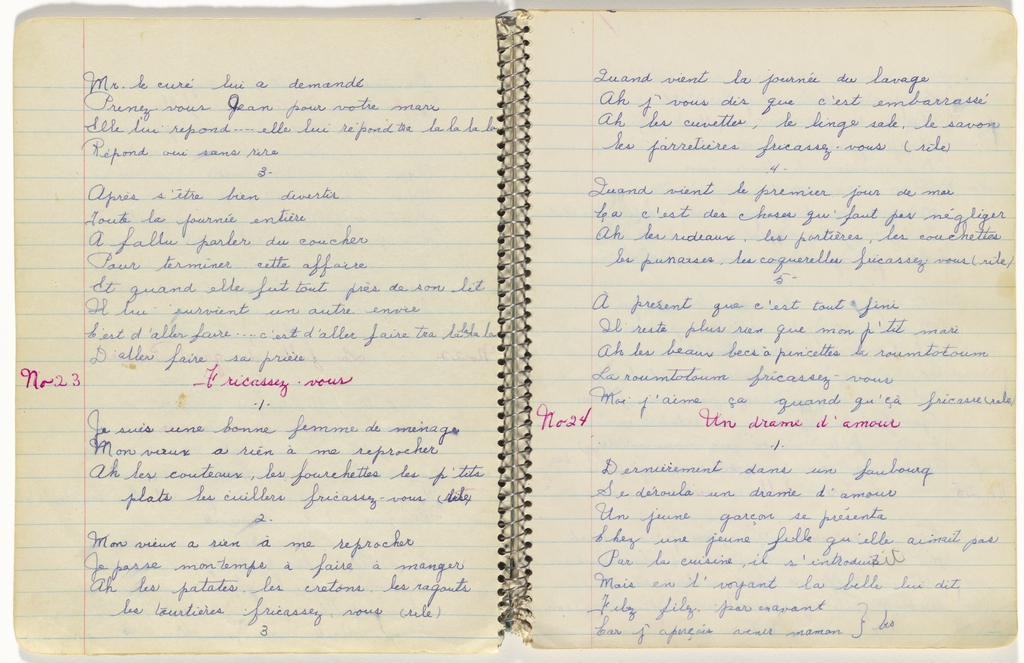 Mr. le curé lui a demandé
Prenez-vous Jean pour votre mari
Elle lui repond.... elle lui répond tra la la la la
Répond oui sans rire
3-
Après s'être bien divertir
Toute la journée entière
A fallu parler du coucher
Pour terminer cette affaire
Et quand elle fut tout près de son lit
Il lui survient un autre envie
C'est d'aller faire.... c'est d'aller faire tra la la la
D'aller faire sa prière
No 23 Fricassez-vous
-1-
Je suis une bonne femme de ménage
Mon vieux a rien à me reprocher
Ah les couteaux, les fourchettes les p'tits
plats les cuillers fricassez-vous
2.
Mon vieux a rien à me reprocher
Je passe mon temps à faire à manger
Ah les patates, les cretons, les ragouts
les tourtières fricassez vous (rile)
3
Quand vient la journée du lavage
Ah j'vous dis que c'est embarrassé
Ah les cuvettes, le linge sale, le savon
les jarretières fricassez-vous (rile)
-4-
Quand vient le premier jour de mai
Ça c'est des choses qu'faut pas négliger
Ah les rideaux, les portières, les couchettes
les punaises, les coquerelles fricassez vous (rile)
5-
A présent que c'est tout fini
Il reste plus rien que mon p'tit mari
Ah les beaux becs à pincettes la roumtotoum
La roumtotoum fricassez-vous
Moi j'aime ça quand qu'çà fricasse (rile)
No 24 Un drame d'amour
-1-
Dernièrement dans un faubourg
Se déroula un drame d'amour
Un jeune garçon se présenta
Chez une jeune fille qu'elle aimait pas
Par la cuisine, il s'introduisit
Mais en l'voyant la belle lui dit
Filez filez, par exavant
Car j'aperçois venir maman } bis